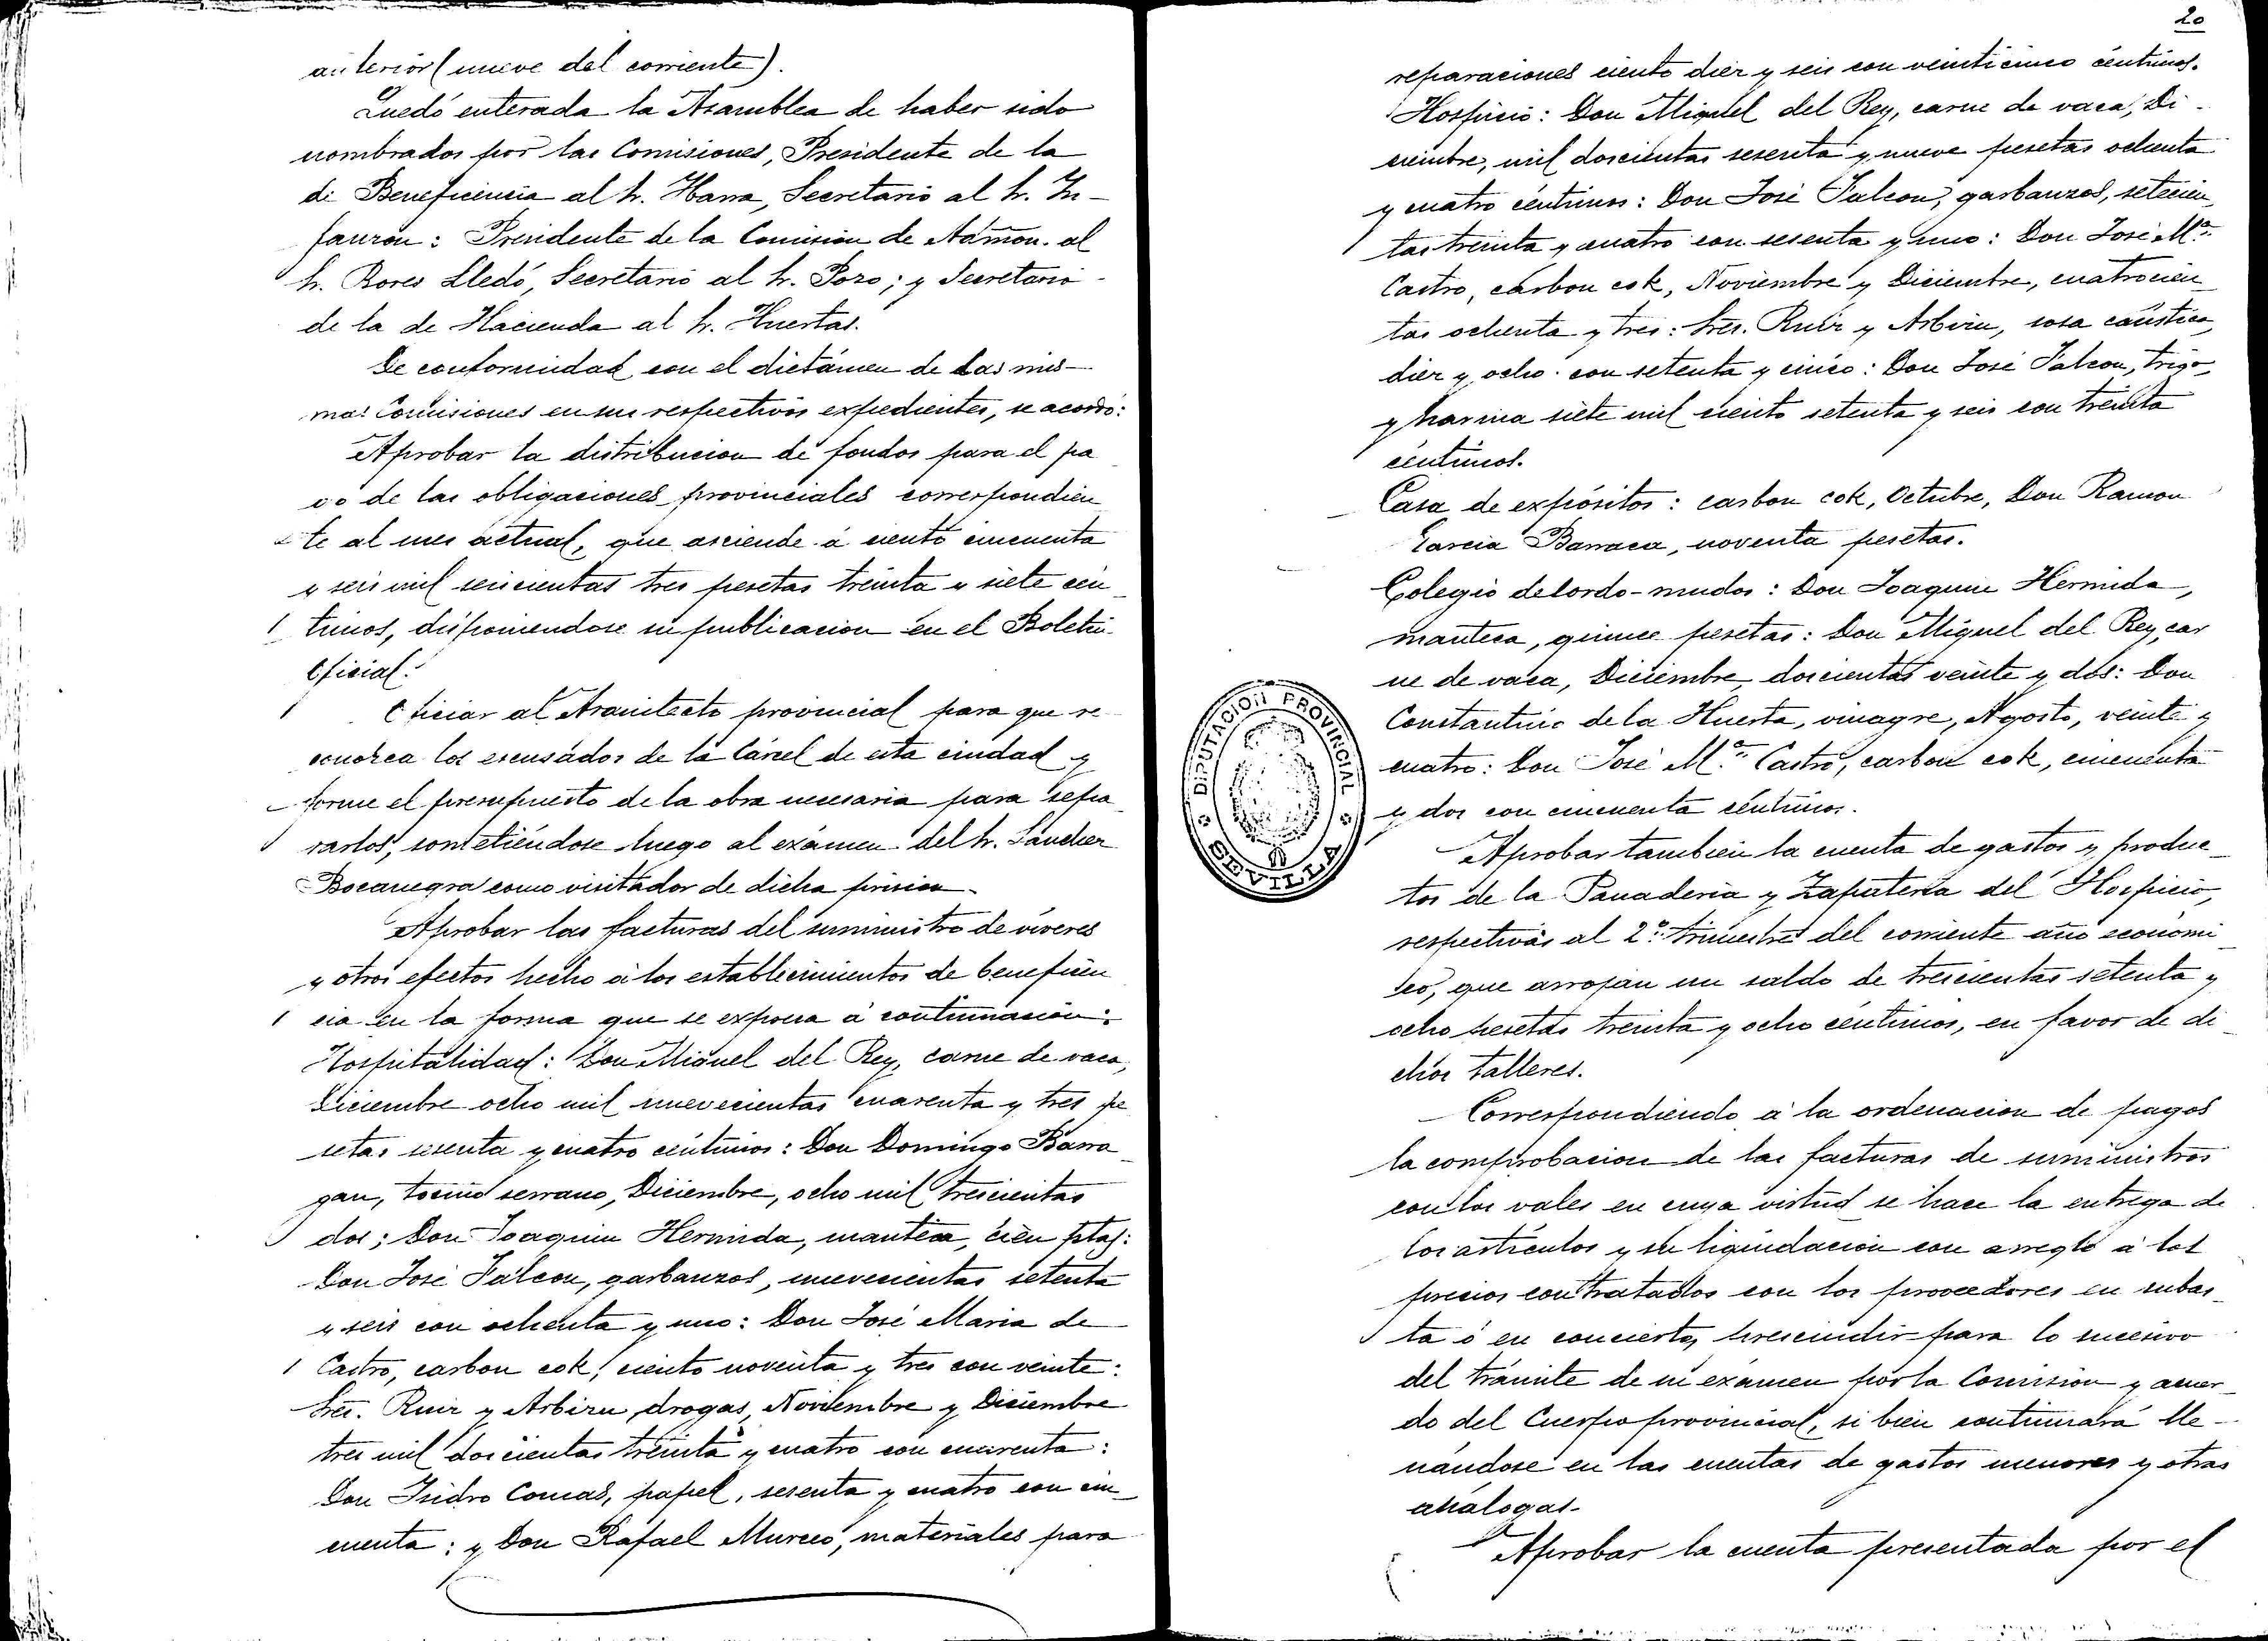 anterior (nueve del corriente).
Quedó enterada la Asamblea de haber sido
nombrados por las Comisiones, Presidente de la
de Beneficencia al Sr. Harra, Secretario al Sr. In-
fanzon: Presidente de la Comision de Admon. al
Sr. Rores Lledó, Secretario al Sr. Pozo; y Secretario
de la de Hacienda al Sr. Huertas.
De conformidad con el dictámen de las mis-
mas Comisiones en sus respectivos expedientes, se acordó:
Aprobar la distribucion de fondos para el pa
go de las obligaciones provinciales correspondien
te al mes actual, que asciende á ciento cincuenta
y seis mil seiscientas tres pesetas treinta y siete cén
timos, disponiendose su publicacion en el Boletin
Oficial.
Oficiar al Arquitecto provincial para que re
conozca los escusados de la Cárcel de esta ciudad y
forme el presupuesto de la obra necesaria para repa
rarlos, sometiéndose luego al exámen del Sr. Sanchez
Bocanegra como visitador de dicha prision.
Aprobar las facturas del suministro de víveres
y otros efectos hecho á los establecimientos de beneficen
cia en la forma que se expresa á continuacion:
Hospitalidad: Don Miguel del Rey, carne de vaca,
Diciembre ocho mil nuevecientas cuarenta y tres pe
setas sesenta y cuatro céntimos: Don Domingo Barra
gan, tocino serrano, Diciembre, ocho mil trescientas
dos; Don Joaquin Hermida, manteca, cien ptas:
Don José Falcon, garbanzos, nuevecientas setenta
y seis con ochenta y uno: Don José Maria de
Castro, carbon cok, ciento noventa y tres con veinte:
Sres. Ruiz y Arbizu, drogas, Noviembre y Diciembre
tres mil doscientas treinta y cuatro con cuarenta:
Don Isidro Comas, papel, sesenta y cuatro con cin
cuenta: y Don Rafael Murcio, materiales para
20
reparaciones ciento diez y seis con veinticinco céntimos.
Hospicio: Don Miguel del Rey, carne de vaca, Di-
ciembre, mil doscientas sesenta y nueve pesetas ochenta
y cuatro céntimos: Don José Falcon, garbanzos, setecien
tas treinta y cuatro con sesenta y uno: Don José Mª
Castro, carbon cok, Noviembre y Diciembre, cuatrocien
tas ochenta y tres: Sres. Ruiz y Arbizu, sosa caústica,
diez y ocho con setenta y cinco: Don José Falcon, trigo
y harina siete mil ciento setenta y seis con treinta
céntimos.
Casa de expósitos: carbon cok, Octubre, Don Ramon
Garcia Barraca, noventa pesetas.
Colegio de sordo-mudos: Don Joaquin Hermida,
manteca, quince pesetas: Don Miguel del Rey, car
ne de vaca, Diciembre, doscientas veinte y dos: Don
Constantino de la Huerta, vinagre, Agosto, veinte y
cuatro: Don José Mª Castro, carbon cok, cincuenta
y dos con cincuenta céntimos.
Aprobar tambien la cuenta de gastos y produc
tos de la Panaderia y Zapateria del Hospicio,
respectivas al 2º trimestre del corriente año económi
co, que arrojan un saldo de trescientas setenta y
ocho pesetas treinta y ocho céntimos, en favor de di
chos talleres.
Correspondiendo á la ordenacion de pagos
la comprobacion de las facturas de suministros
con los vales en cuya virtud se hace la entrega de
los artículos y su liquidacion con arreglo á los
precios contratados con los proveedores en subas
ta ó en concierto, prescindir para lo sucesivo
del trámite de su exámen por la Comision y acuer
do del Cuerpo provincial, si bien continuará lle-
nándose en las cuentas de gastos menores y otras
análogas.
Aprobar la cuenta presentada por el
DIPUTACION PROVINCIAL
SEVILLA